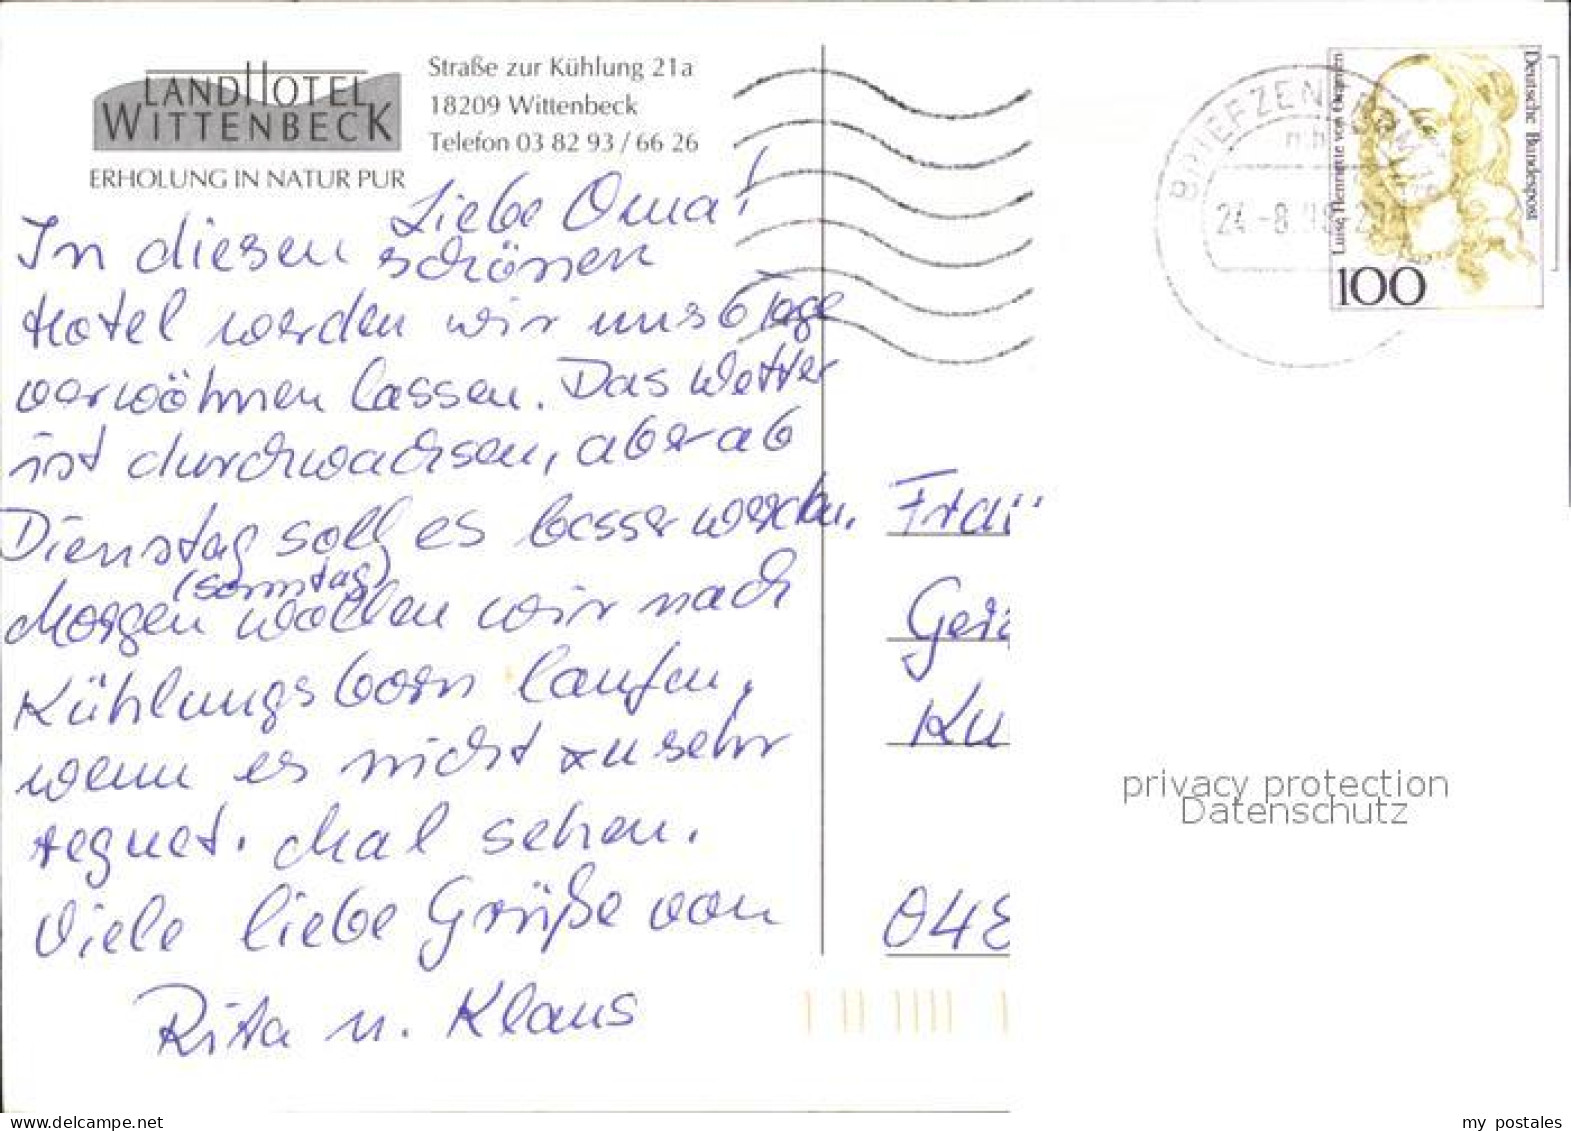 LANDHOTEL
WITTENBECK
ERHOLUNG IN NATUR PUR
Straße zur Kühlung 21a
18209 Wittenbeck
Telefon 03 82 93 / 66 26
Liebe Oma!
In diesen schönen
Hotel werden wir uns 6 Tage
verwöhnen lassen. Das Wetter
ist durchwachsen, aber ab
Dienstag soll es besser werden.
(Sonntag)
Morgen wollen wir nach
Kühlungsborn laufen,
wenn es nicht zu sehr
regnet. Mal sehen.
Viele liebe Grüße von
Rita u. Klaus
BRIEFZEN
24.-8.98
Deutsche Bundespost
Luise Henriette von Oranien
100
Frau
Ku
04
privacy protection
Datenschutz
delcampe.net
my_postales